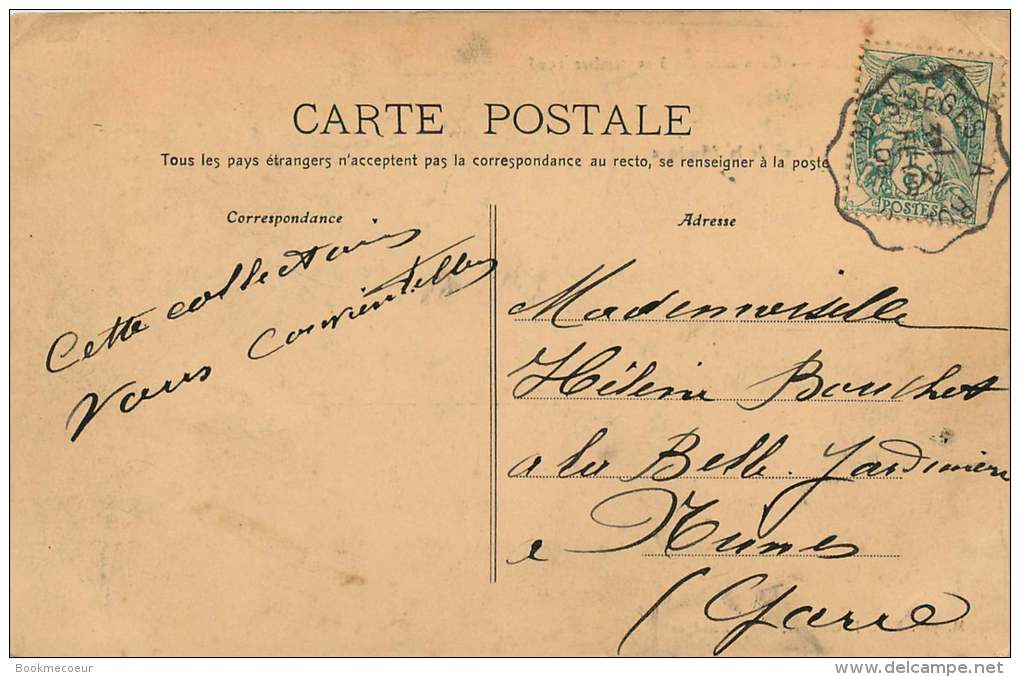 CARTE POSTALE
Tous les pays étrangers n'acceptent pas la correspondance au recto, se renseigner à la poste
Correspondance
Adresse
Cette collection
vous convient elle
Mademoiselle
Hélène Bouchet
a la Belle Jardiniere
a Nimes
(Gard
BESSEGES A
POSTES
Bookmecoeur
delcampe.net